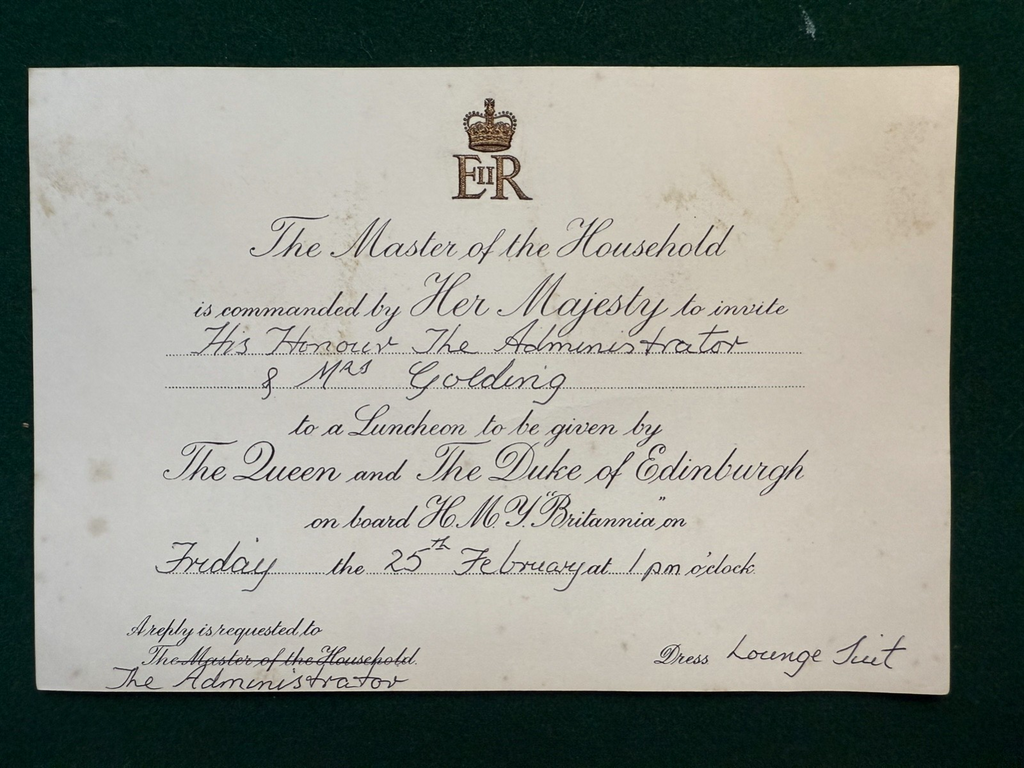 EIIR
The Master of the Household
is commanded by Her Majesty to invite
His Honour The Administrator
& Mrs Golding
to a Luncheon to be given by
The Queen and The Duke of Edinburgh
on board H.M.Y. "Britannia" on
Friday the 25th February at 1 pm o'clock.
A reply is requested to
The Master of the Household.
The Administrator
Dress Lounge Suit